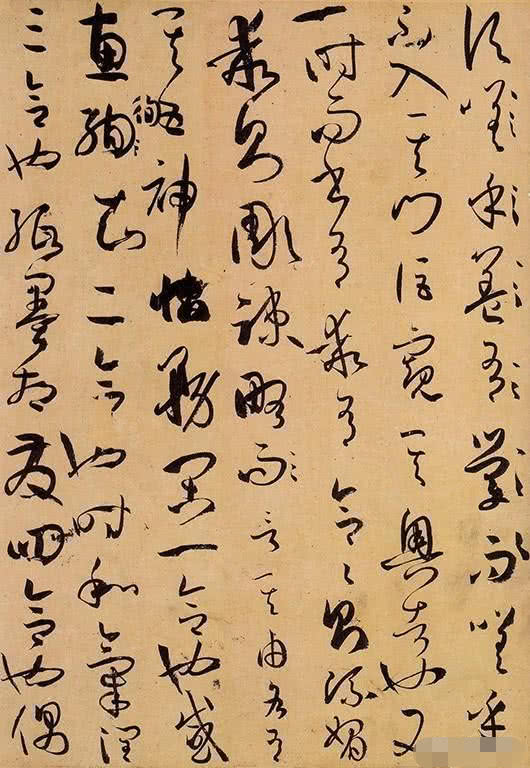 頃嗟乎蓋有學而嗟乎
不入其門詎窺其奧者也又
一時而書有乖有合合則流媚
乖則彫疎略而言其由各有
其五神怡務閑一合也感
惠徇知二合也時和氣潤
三合也紙墨相發四合也偶